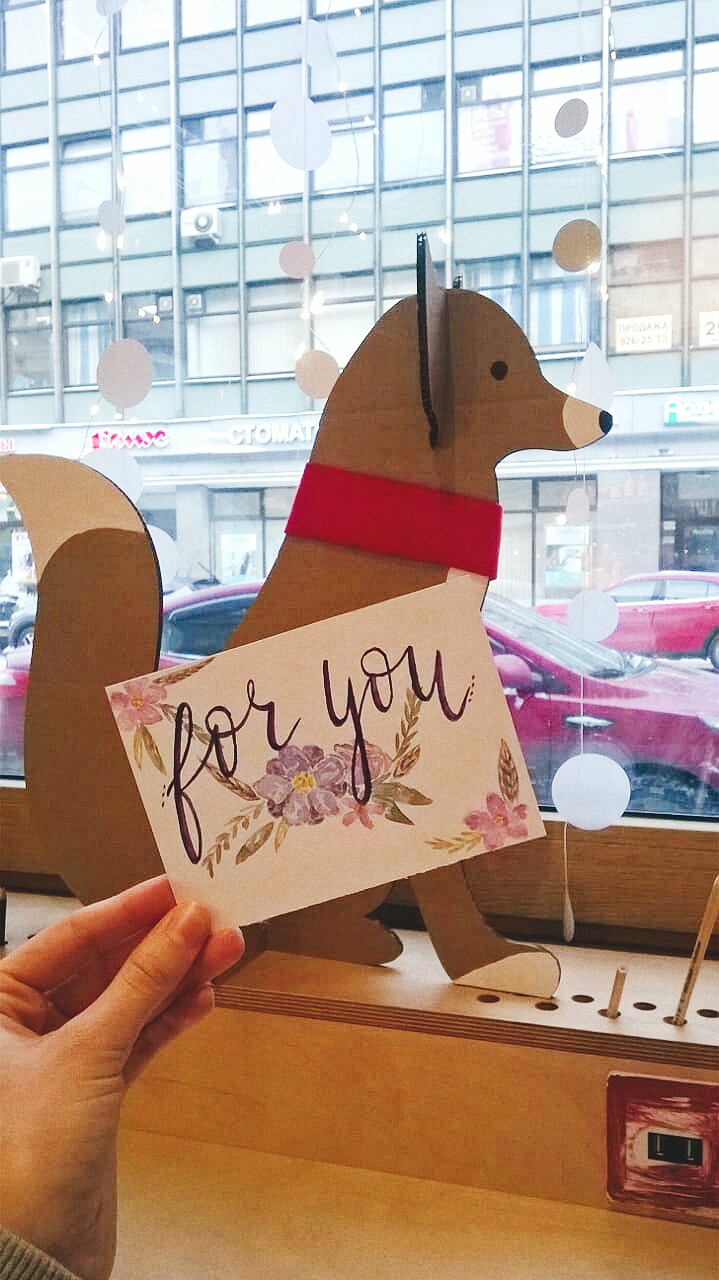 ПРОДАЖА
926-25-13
СТОМАТ
for you